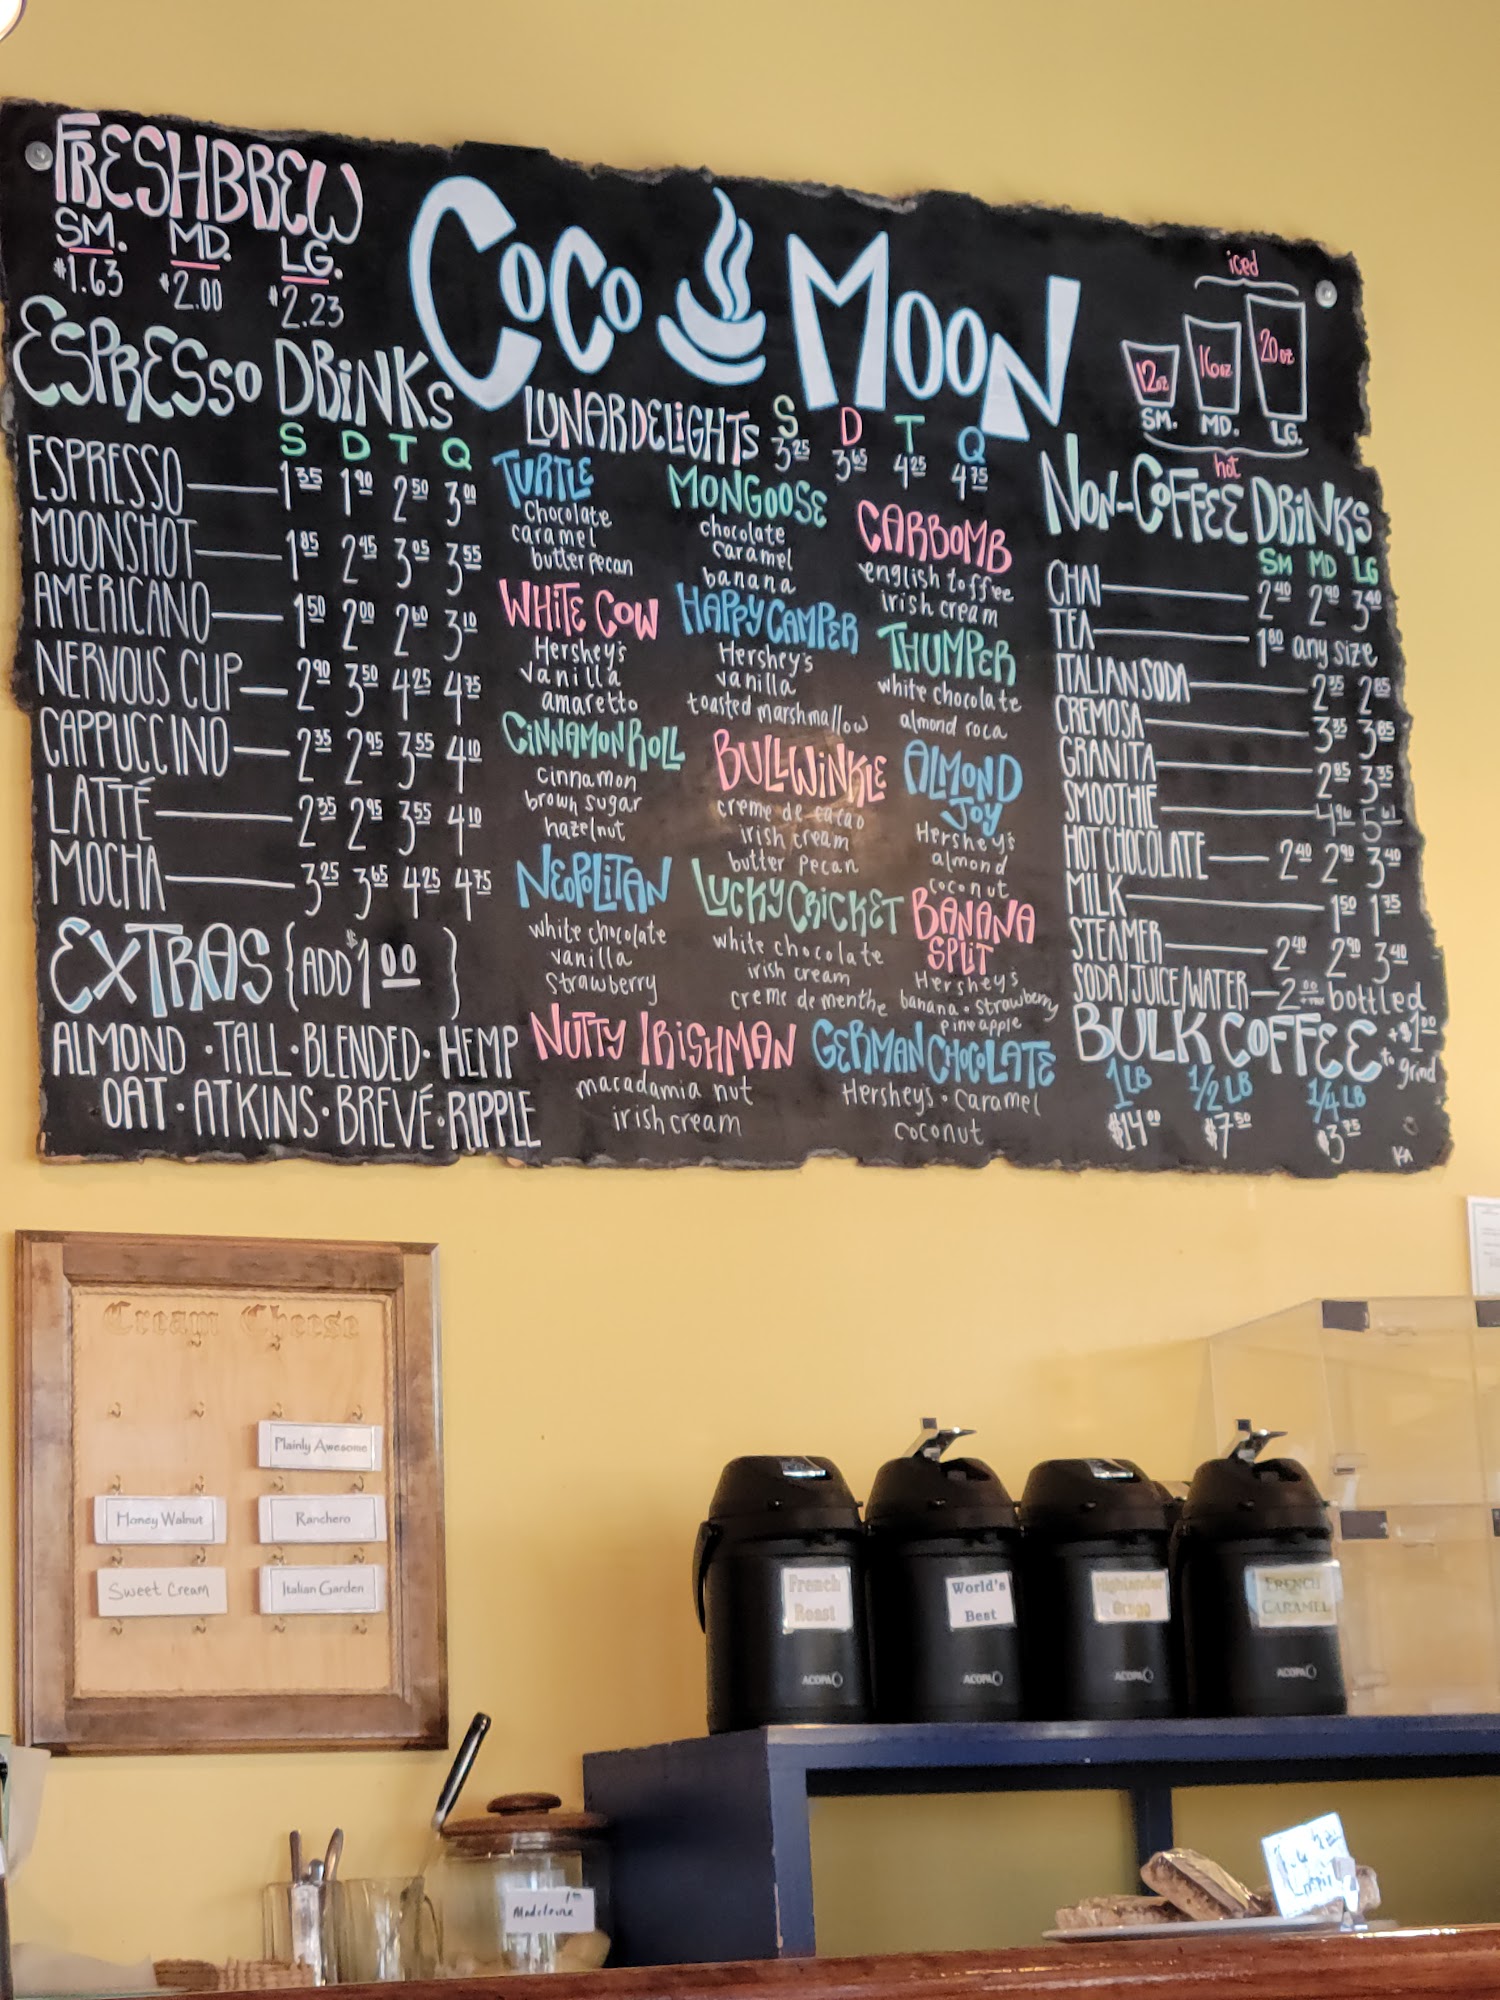 FRESHBREW
SM. MD. LG.
$1.63 $2.00 $2.23
COCO MOON
iced
12oz 16oz 20oz
SM. MD. LG.
hot
ESPRESSO DRINKS
S D T Q
ESPRESSO 1.35 1.90 2.50 3.00
MOONSHOT 1.85 2.45 3.05 3.55
AMERICANO 1.50 2.00 2.60 3.10
NERVOUS CUP 2.90 3.50 4.25 4.75
CAPPUCCINO 2.35 2.95 3.55 4.10
LATTÉ 2.35 2.95 3.55 4.10
MOCHA 3.25 3.65 4.25 4.75
EXTRAS {ADD $1.00}
ALMOND · TALL · BLENDED · HEMP
OAT · ATKINS · BREVÉ · RIPPLE
LUNAR DELIGHTS S D T Q
3.25 3.65 4.25 4.75
TURTLE
chocolate
caramel
butter pecan
WHITE COW
Hershey's
vanilla
amaretto
CINNAMON ROLL
cinnamon
brown sugar
hazelnut
NEOPOLITAN
white chocolate
vanilla
strawberry
NUTTY IRISHMAN
macadamia nut
irish cream
MONGOOSE
chocolate
caramel
banana
HAPPY CAMPER
Hershey's
vanilla
toasted marshmallow
BULLWINKLE
creme de cacao
irish cream
butter pecan
LUCKY CRICKET
white chocolate
irish cream
creme de menthe
GERMAN CHOCOLATE
Hershey's · caramel
coconut
CARBOMB
english toffee
irish cream
THUMPER
white chocolate
almond roca
ALMOND
JOY
Hershey's
almond
coconut
BANANA
SPLIT
Hershey's
banana · strawberry
pineapple
NON-COFFEE DRINKS
SM MD LG
CHAI 2.40 2.90 3.40
TEA 1.80 any size
ITALIAN SODA 2.35 2.85
CREMOSA 3.35 3.85
GRANITA 2.85 3.35
SMOOTHIE 4.96 5.61
HOT CHOCOLATE 2.40 2.90 3.40
MILK 1.50 1.75
STEAMER 2.40 2.90 3.40
SODA/JUICE/WATER 2.00 bottled
BULK COFFEE +$1.00 to grind
1 LB 1/2 LB 1/4 LB
$14.00 $7.50 $3.75
KA
Cream Cheese
Plainly Awesome
Honey Walnut
Ranchero
Sweet Cream
Italian Garden
French
Roast
World's
Best
Highlander
Grogg
FRENCH
CARAMEL
ACOPA
ACOPA
ACOPA
ACOPA
Madeleine